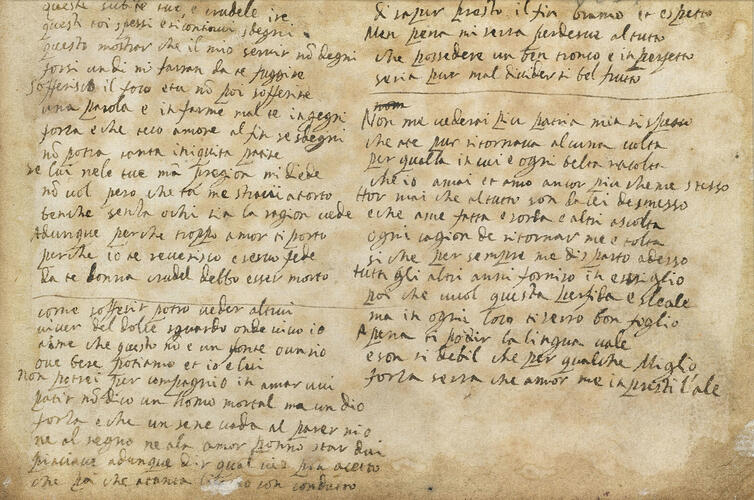 queste subite tue, e crudele ire
questi toi spessi e si continui sdegni
questo mostrar che il mio servir nõ degni
forsi un di mi farran da te fuggire
Sofferisco il foco et nõ poi sofferire
una parola e in farme mal te ingegni
forza e che teco amore al fin se sdegni
nõ potra tanta iniquita patire
se lui nele tue mã pregion mi diede
nõ vol pero che tu me stracii a torto
benche senza ochi sia la ragion vede
Adunque perche troppo amor ti porto
perche io te reverisco e servo fede
da te donna crudel debbo esser morto
come sofferir potro veder altrui
viver del dolce sguardo onde vivo io
ahime che questo nõ e un fonte ou rio
ove bere potiamo et io e lui
non potrei per compagnio in amar uui
patir nõ dico un homo mortal ma un dio
forza e che un sene vada al parer mio
ne al regno ne ala amor ponno star dui
piaciave adunque dir qual vi e piu aceto
che poi che
di saper presto il fin bramo et espetto
Men pena mi serra perderve al tutto
che possedere un ben tronco e imperfetto
seria pur mal dividersi bel frutto
Non me vederai piu patria mia si spesso
che a te pur ritornava alcuna volta
per quella in cui e ogni belta racolta
che io amai et amo ancor piu che me stesso
Hor mai che al tutto son da lei desmesso
e che a me fatta e sorda e altri ascolta
ogni cagion de ritornar me e tolta
si che per sempre me di parto adesso
tutti gli altri anni fornizo in essiglio
poi che vuol questa perfida e sleale
ma in ogni loco ti serro bon figlio
Apena ti po dir la lingua vale
e son si debil che per qualche Miglio
forza serra che amor me impresti l'ale